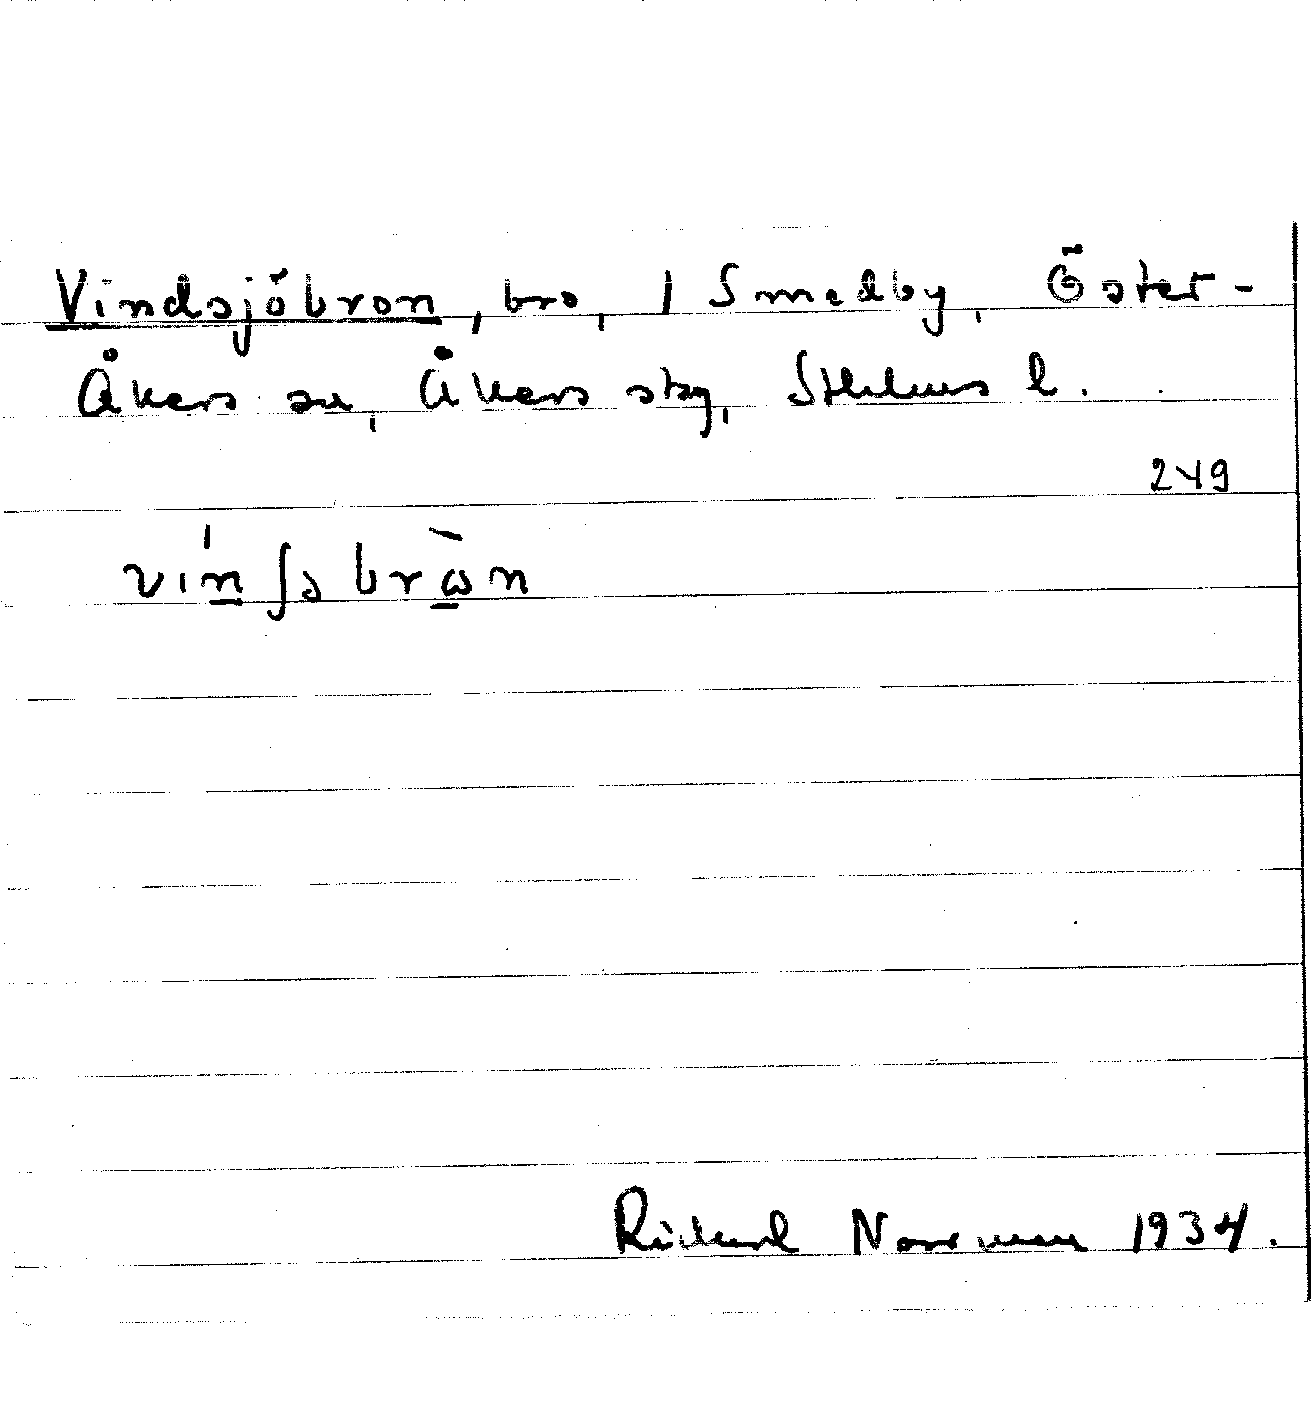 Vindsjöbron, bro, 1 Smedby, Öster-
Åkers sn, Åkers skg, Sthlms l.
249
vi̇́n̲ʃə brὼ̲n
Rickard Norrman 1934.